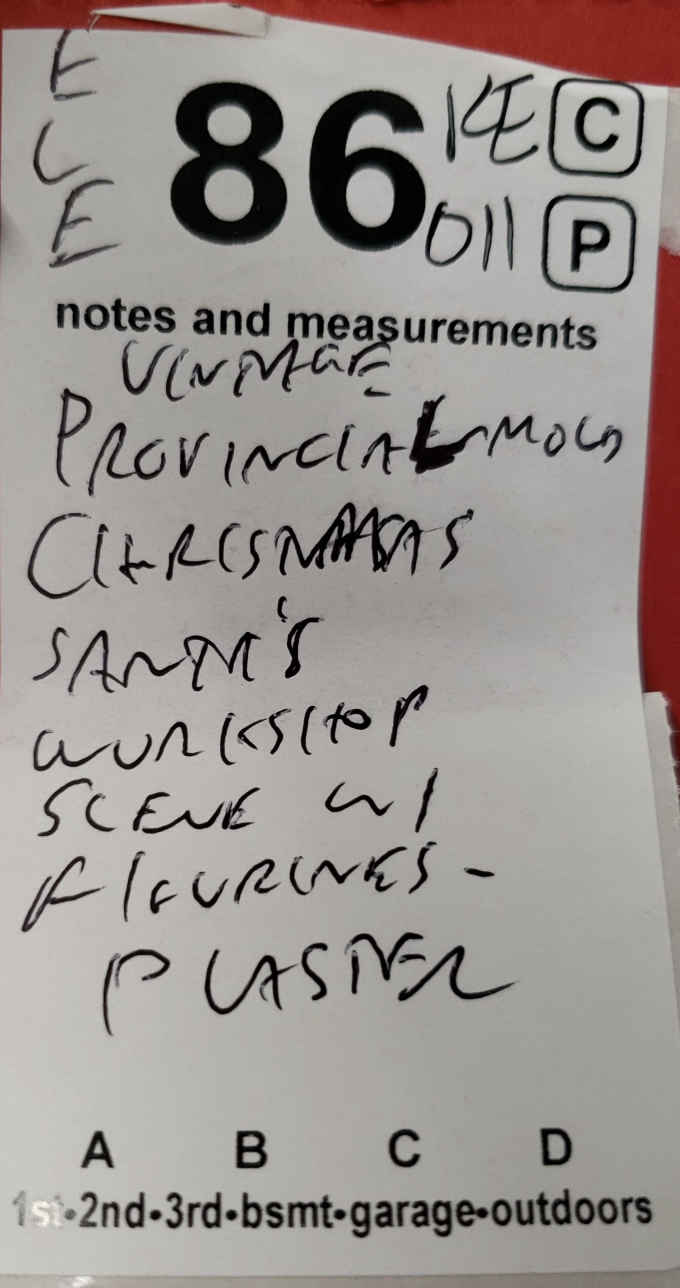 E
C
E
86
KE
011
C
P
notes and measurements
VINTAGE
PROVINCIAL MOLD
CHRISMAS
SANTA'S
WORKSHOP
SCENE W/
FIGURINES -
PLASTER
A B C D
1st•2nd•3rd•bsmt•garage•outdoors